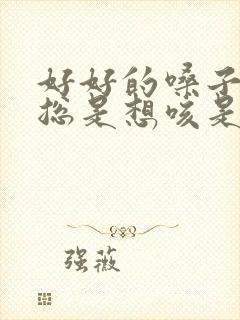 好好的嗓子
总是想咳是
强薇